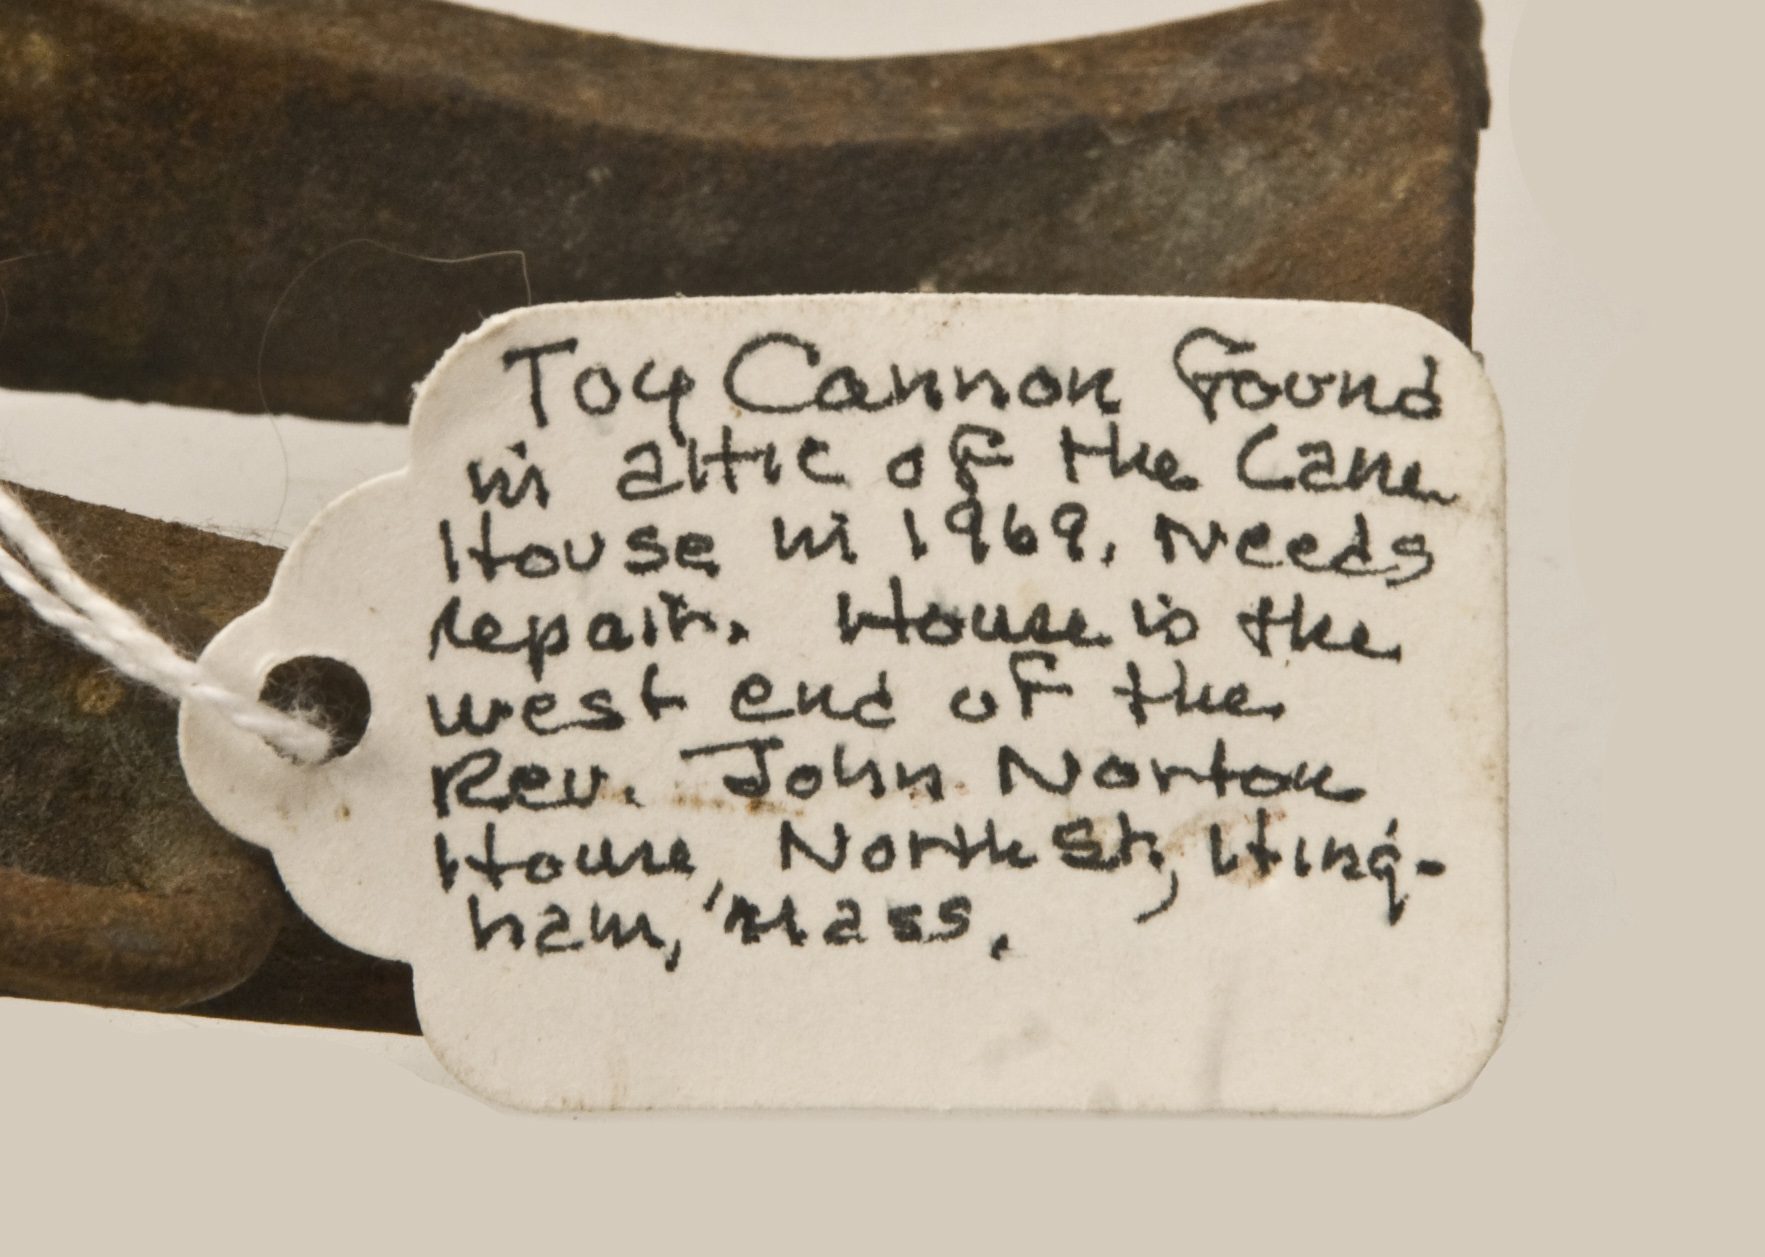 Toy Cannon found
in attic of the Cane
House in 1969. Needs
repair. House is the
west end of the
Rev. John Norton
House, North St, Hing-
ham, Mass.